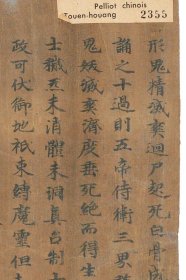 Pelliot chinois
Touen-houang
2355
形鬼精滅爽迴尸起死白骨成
誦之十過則五帝侍衛三界
鬼妖滅爽濟度垂死絕而得生
士穢炁未消體未洞真召制十
政可伏御地祇束縛魔靈但